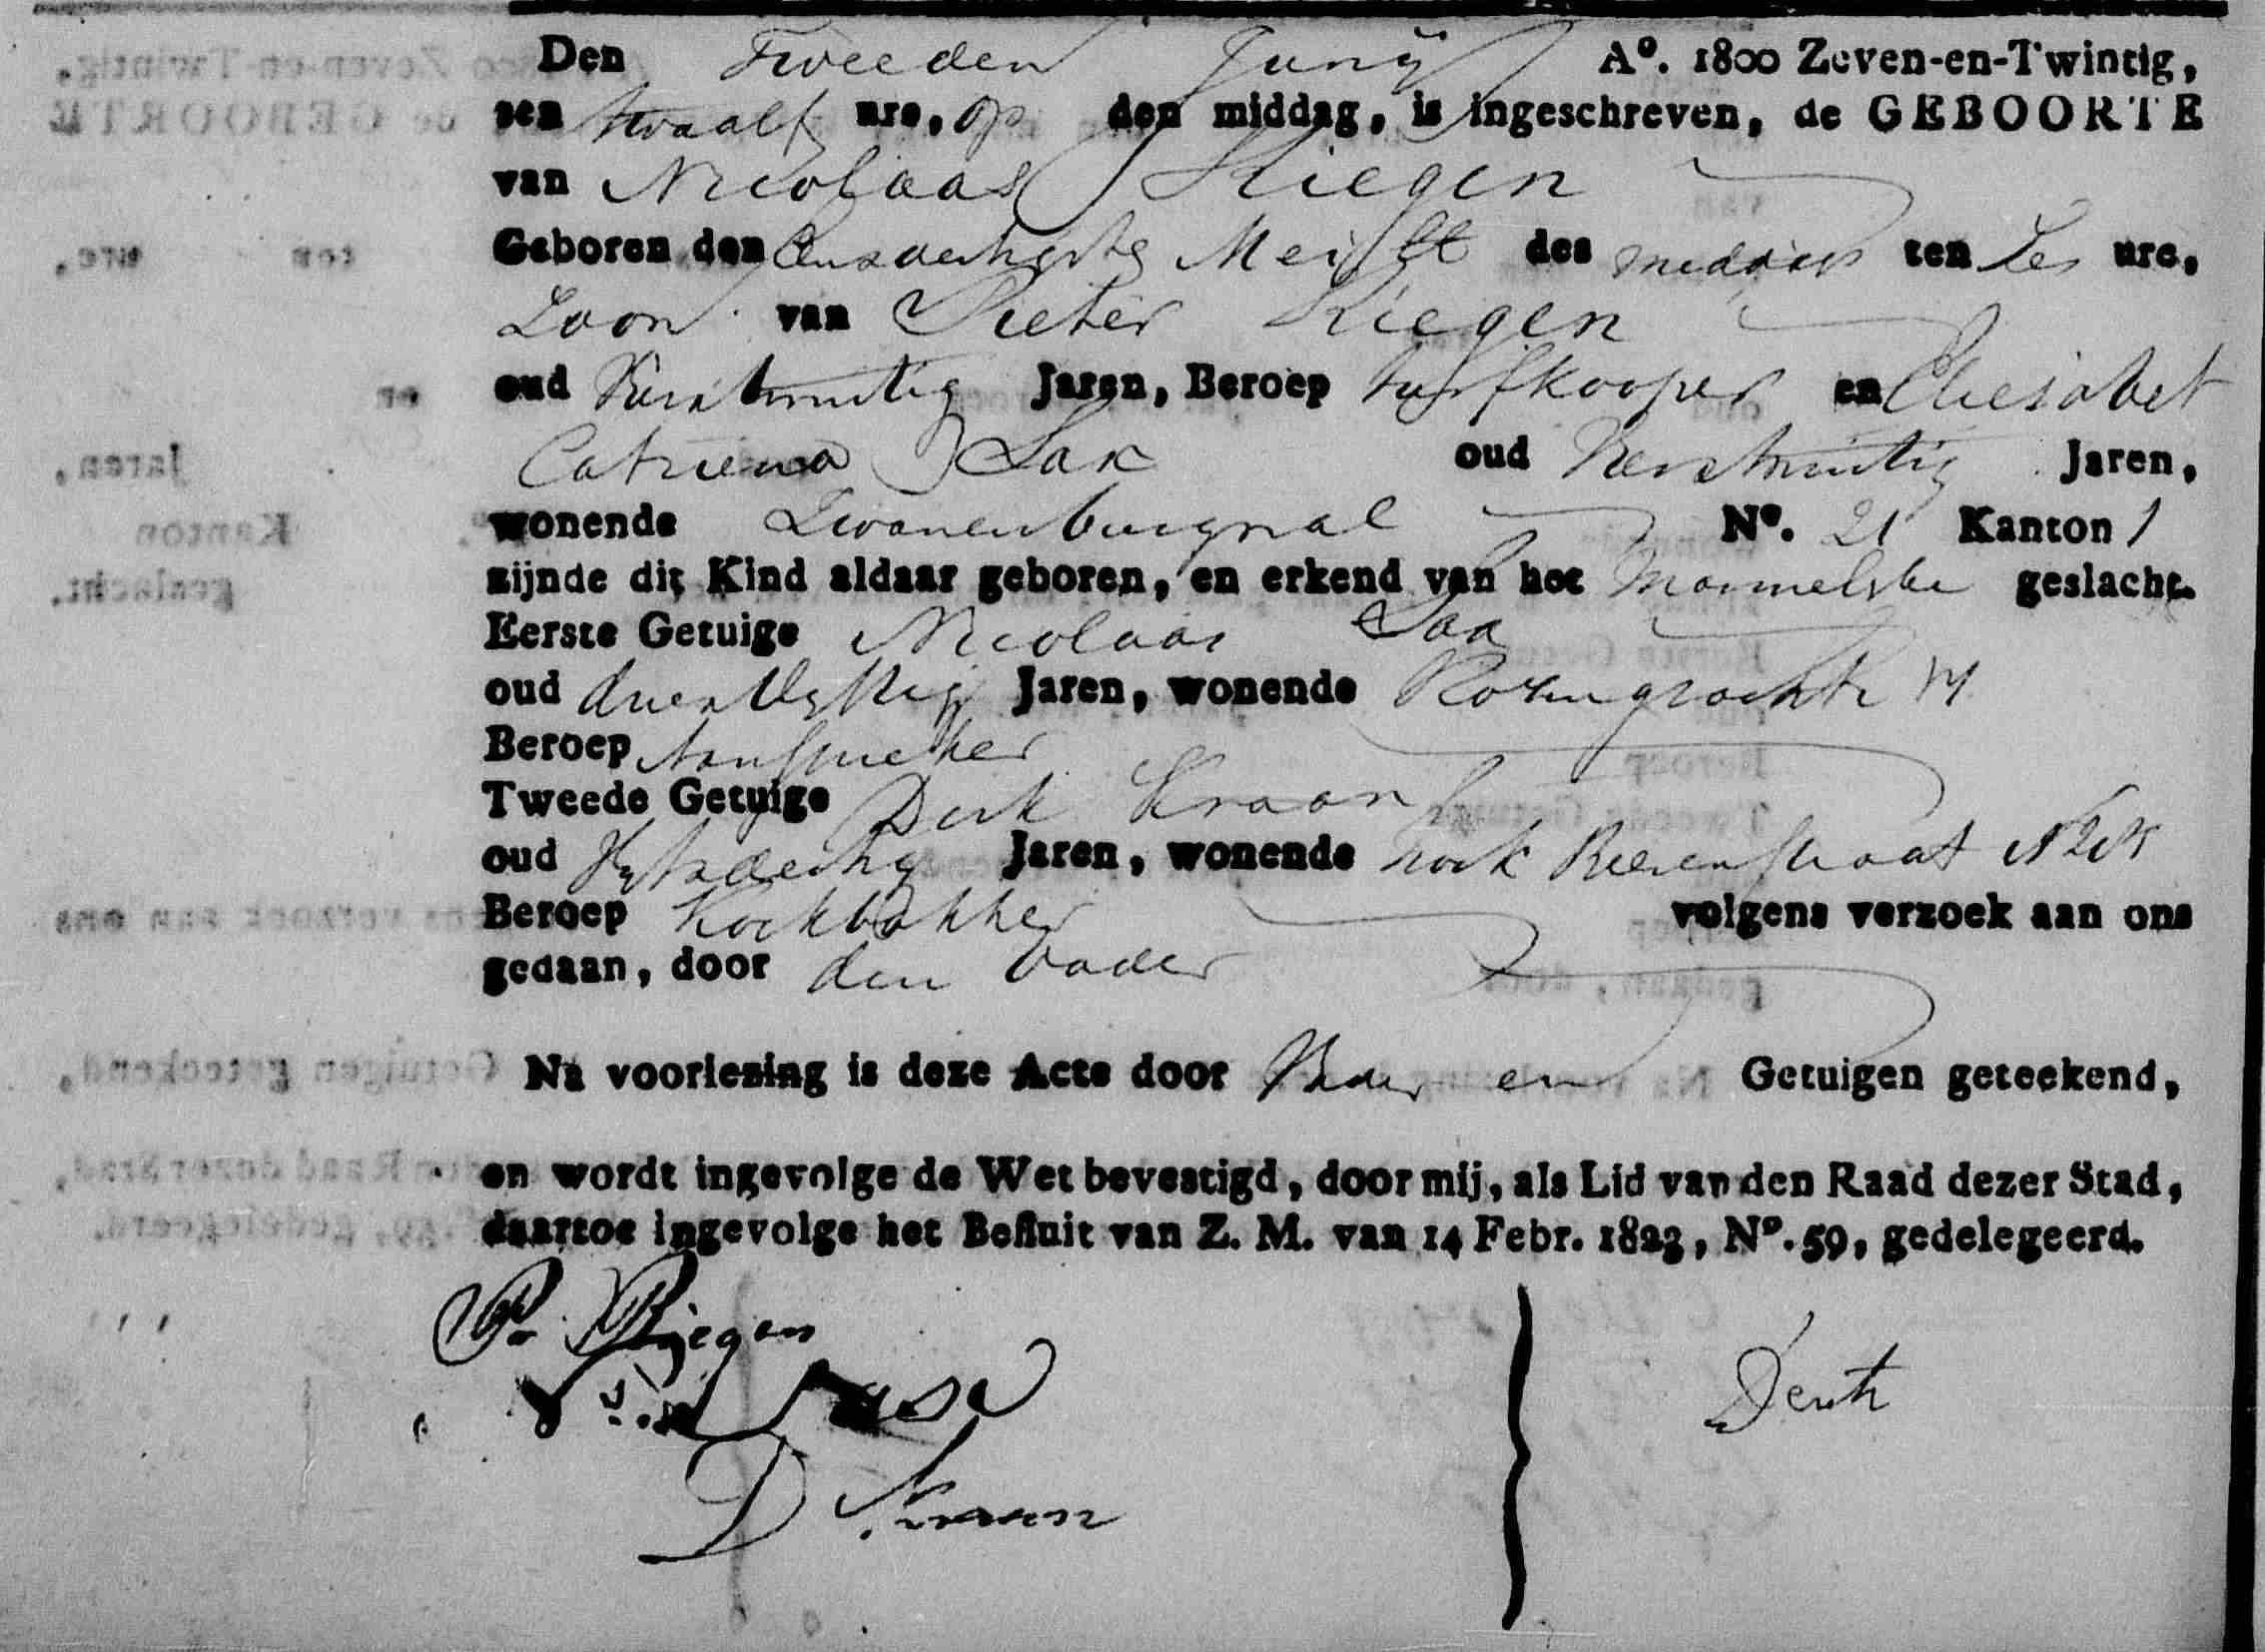 Den Tweeden Junij A°. 1800 Zeven-en-Twintig,
ten twaalf ure, op den middag, is ingeschreven, de GEBOORTE
van Nicolaas Riegen
Geboren den Eenendertigste Mei ll des middags ten Zes ure,
Zoon van Pieter Riegen
oud Jaren, Beroep turfkooper en Eliesabet
Catriena Sax oud Jaren,
wonende Zwanenburgwal N°. 21 Kanton 1
zijnde dit Kind aldaar geboren, en erkend van het Mannelyke geslacht.
Eerste Getuige Nicolaas
oud drienvyftig Jaren, wonende Rozengracht
Beroep Aanspreeker
Tweede Getuige Dirk Kraan
oud Jaren, wonende hoek Beerenstraat
Beroep Koekbakker volgens verzoek aan ons
gedaan, door den Vader
Na voorlezing is deze Acte door Vader en Getuigen geteekend,
en wordt ingevolge de Wet bevestigd, door mij, als Lid van den Raad dezer Stad,
daartoe ingevolge het Besluit van Z. M. van 14 Febr. 1823, N°. 59, gedelegeerd.
P. Riegen
D Kraan